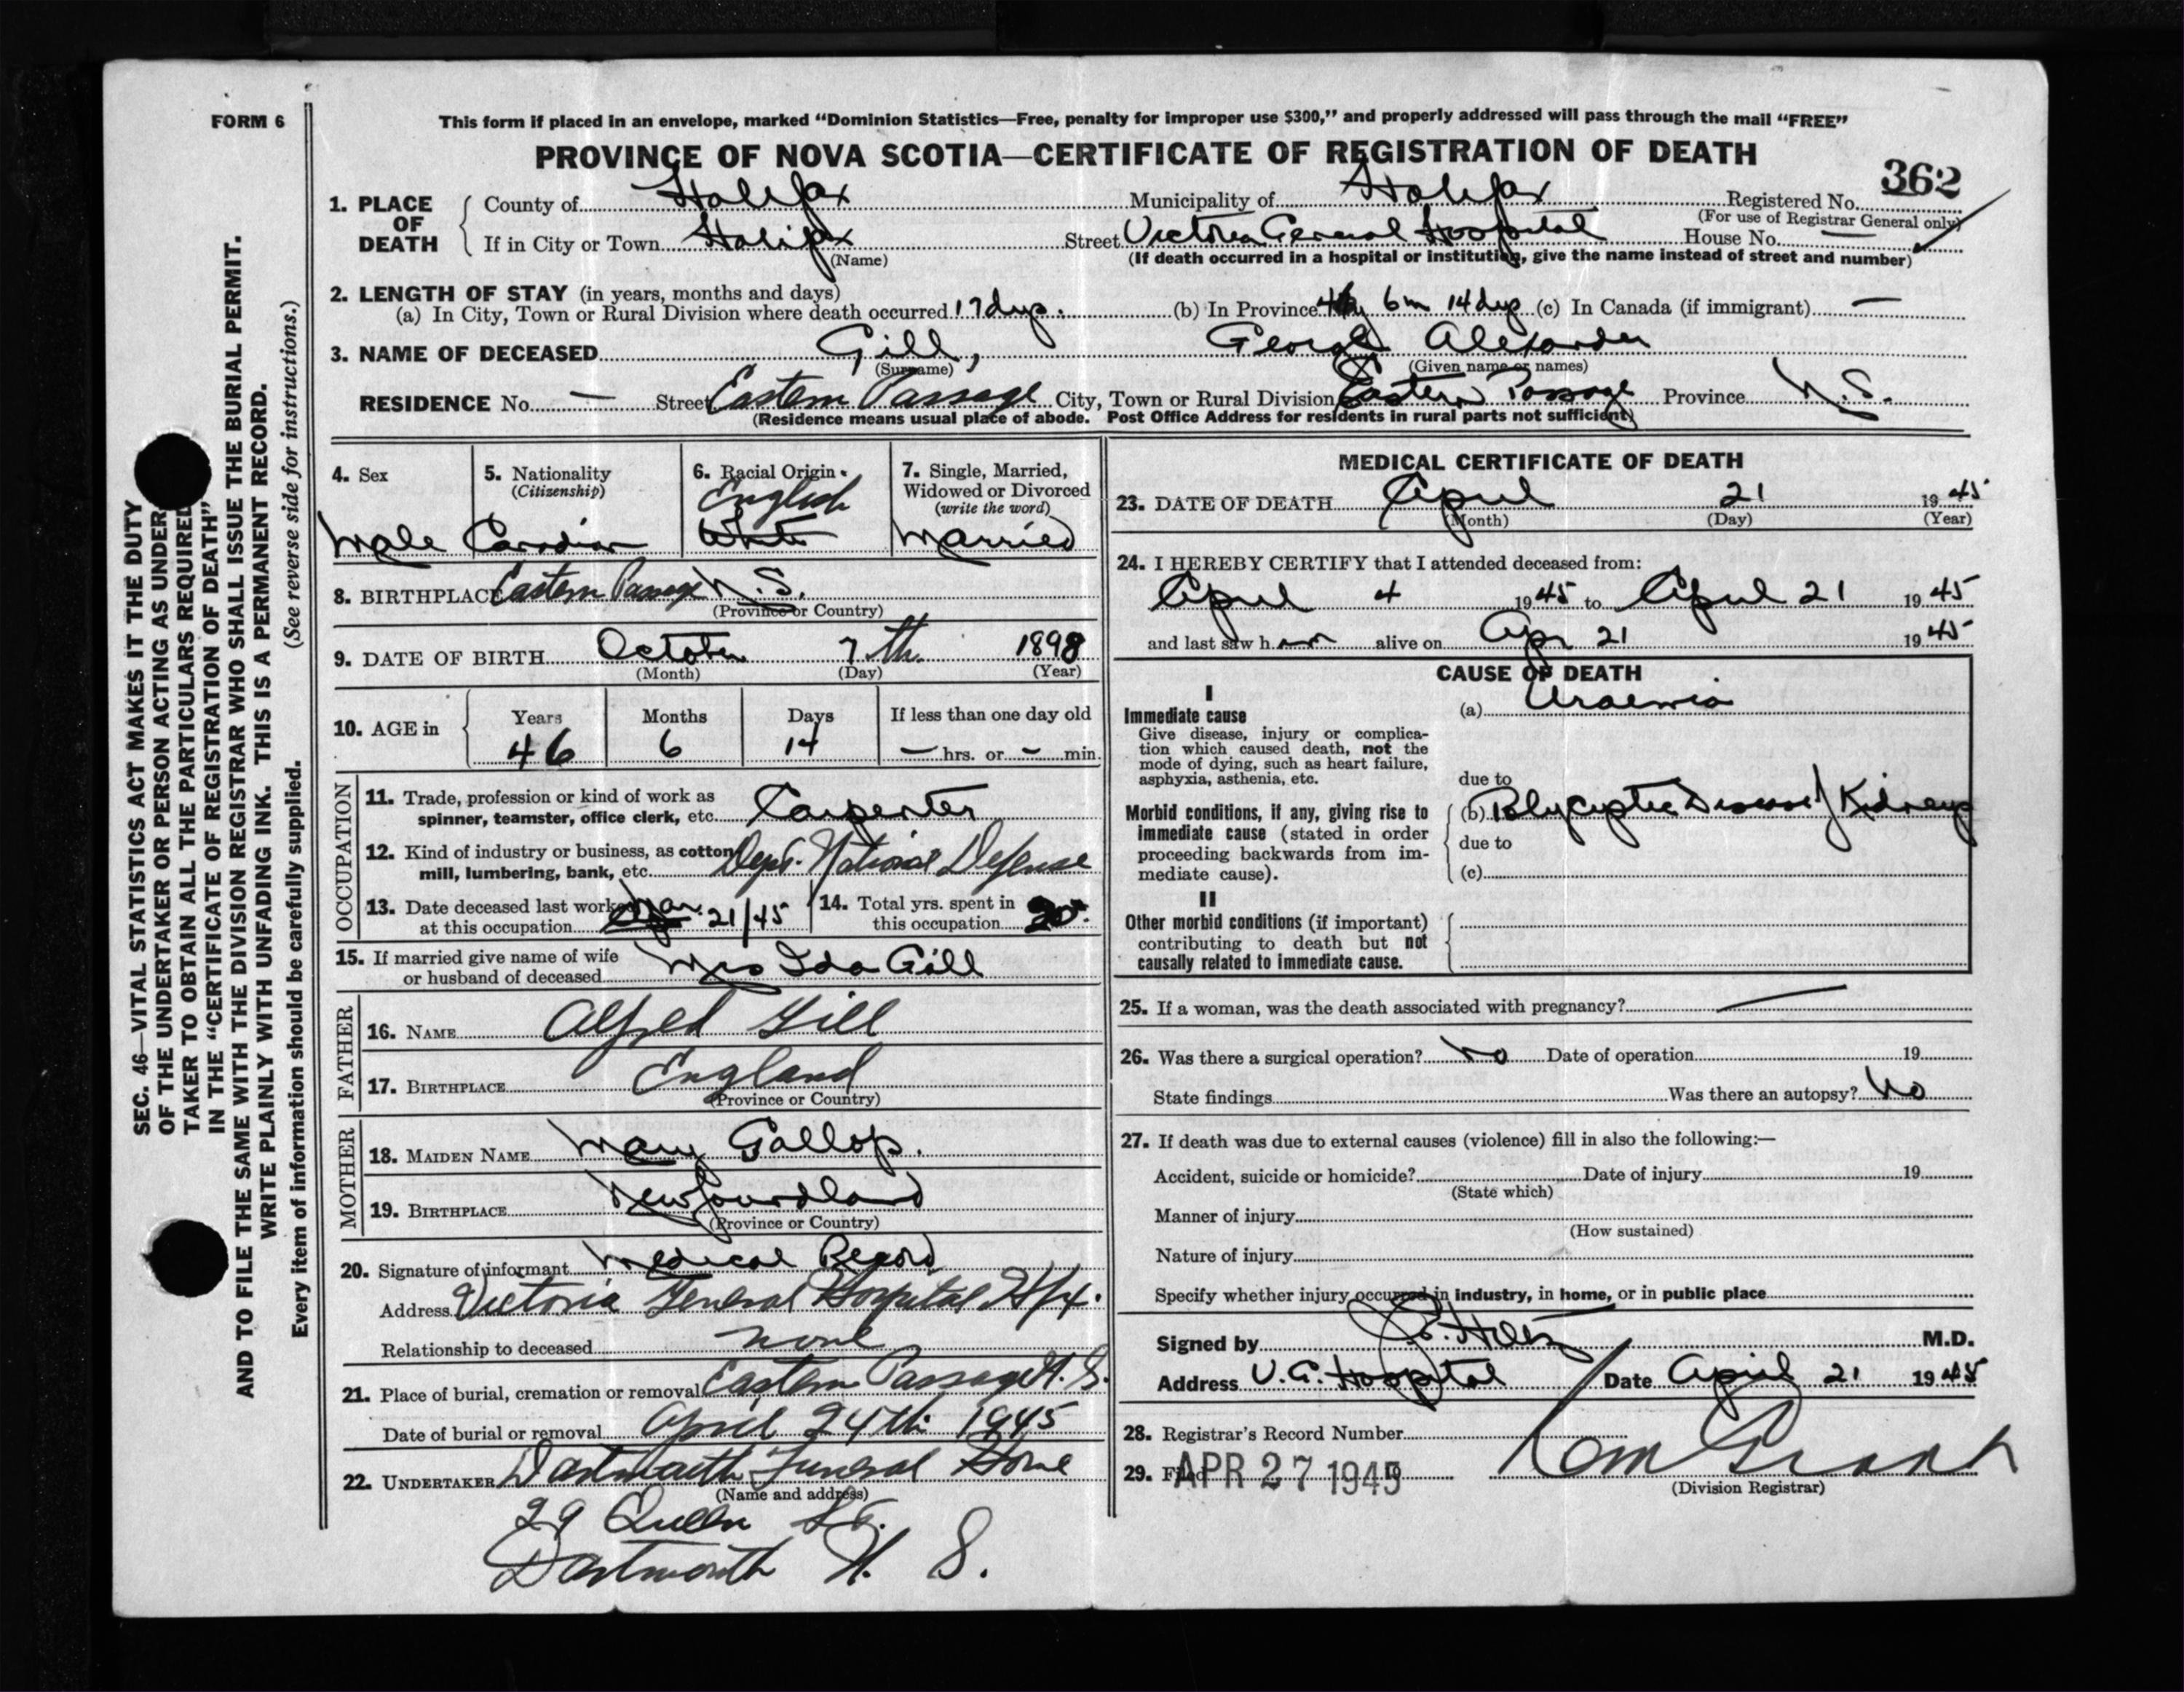 FORM 6
This form if placed in an envelope, marked “Dominion Statistics—Free, penalty for improper use $300,” and properly addressed will pass through the mail “FREE”
PROVINCE OF NOVA SCOTIA—CERTIFICATE OF REGISTRATION OF DEATH
362
1. PLACE OF DEATH
County of Halifax Municipality of Halifax Registered No.
(For use of Registrar General only)
If in City or Town Halifax Street Victoria General Hospital House No. —
(Name) (If death occurred in a hospital or institution, give the name instead of street and number)
2. LENGTH OF STAY (in years, months and days)
(a) In City, Town or Rural Division where death occurred 17 dys. (b) In Province 46y 6m 14 dys (c) In Canada (if immigrant) —
3. NAME OF DECEASED Gill, George Alexander
(Surname) (Given name or names)
RESIDENCE No. — Street Eastern Passage City, Town or Rural Division Eastern Passage Province N.S.
(Residence means usual place of abode. Post Office Address for residents in rural parts not sufficient)
4. Sex Male
5. Nationality (Citizenship) Canadian
6. Racial Origin English White
7. Single, Married, Widowed or Divorced (write the word) Married
8. BIRTHPLACE Eastern Passage N.S.
(Province or Country)
9. DATE OF BIRTH October 7th 1898
(Month) (Day) (Year)
10. AGE in Years 46 Months 6 Days 14 If less than one day old — hrs. or — min.
OCCUPATION
11. Trade, profession or kind of work as
spinner, teamster, office clerk, etc. Carpenter
12. Kind of industry or business, as cotton
mill, lumbering, bank, etc. Dept. National Defense
13. Date deceased last worked
at this occupation Jan. 21/45
14. Total yrs. spent in
this occupation 20
15. If married give name of wife
or husband of deceased Mrs Ida Gill
FATHER
16. NAME Alfred Gill
17. BIRTHPLACE England
(Province or Country)
MOTHER
18. MAIDEN NAME Mary Gallop.
19. BIRTHPLACE Newfoundland
(Province or Country)
20. Signature of informant Medical Record
Address Victoria General Hospital Hfx.
Relationship to deceased none
21. Place of burial, cremation or removal Eastern Passage N.S.
Date of burial or removal April 24th 1945
22. UNDERTAKER Dartmouth Funeral Home
(Name and address)
29 Queen St.
Dartmouth N. S.
MEDICAL CERTIFICATE OF DEATH
23. DATE OF DEATH April 21 1945
(Month) (Day) (Year)
24. I HEREBY CERTIFY that I attended deceased from:
April 4 1945 to April 21 1945
and last saw him alive on Apr 21 1945
CAUSE OF DEATH
I
Immediate cause
Give disease, injury or complica-
tion which caused death, not the
mode of dying, such as heart failure,
asphyxia, asthenia, etc.
(a) Uraemia
due to
Morbid conditions, if any, giving rise to
immediate cause (stated in order
proceeding backwards from im-
mediate cause).
(b) Polycystic Disease of Kidneys
due to
(c)
II
Other morbid conditions (if important)
contributing to death but not
causally related to immediate cause.
25. If a woman, was the death associated with pregnancy? —
26. Was there a surgical operation? No Date of operation 19
State findings Was there an autopsy? No
27. If death was due to external causes (violence) fill in also the following:—
Accident, suicide or homicide? Date of injury 19
(State which)
Manner of injury
(How sustained)
Nature of injury
Specify whether injury occurred in industry, in home, or in public place
Signed by M.D.
Address V.G. Hospital Date April 21 1945
28. Registrar's Record Number
29. Filed APR 27 1945 19
(Division Registrar)
SEC. 46—VITAL STATISTICS ACT MAKES IT THE DUTY
OF THE UNDERTAKER OR PERSON ACTING AS UNDER
TAKER TO OBTAIN ALL THE PARTICULARS REQUIRED
IN THE “CERTIFICATE OF REGISTRATION OF DEATH”
AND TO FILE THE SAME WITH THE DIVISION REGISTRAR WHO SHALL ISSUE THE BURIAL PERMIT.
WRITE PLAINLY WITH UNFADING INK. THIS IS A PERMANENT RECORD.
Every item of information should be carefully supplied. (See reverse side for instructions.)